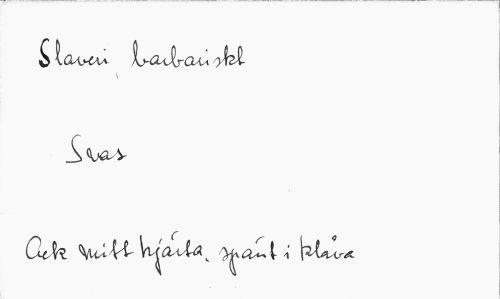 Slaveri, barbariskt
Svas
Ack mitt hjärta, spänt i klåva